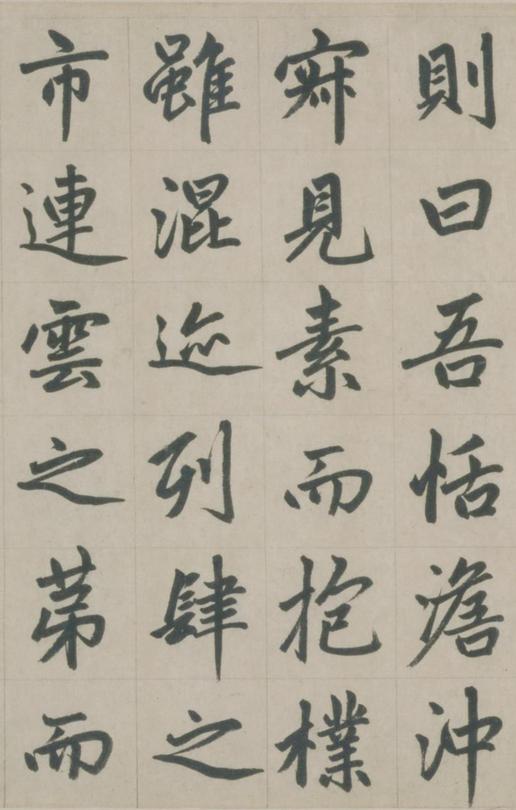 則曰吾恬澹沖
㝥見素而抱樸
雖混迹列肆之
市連雲之苐而